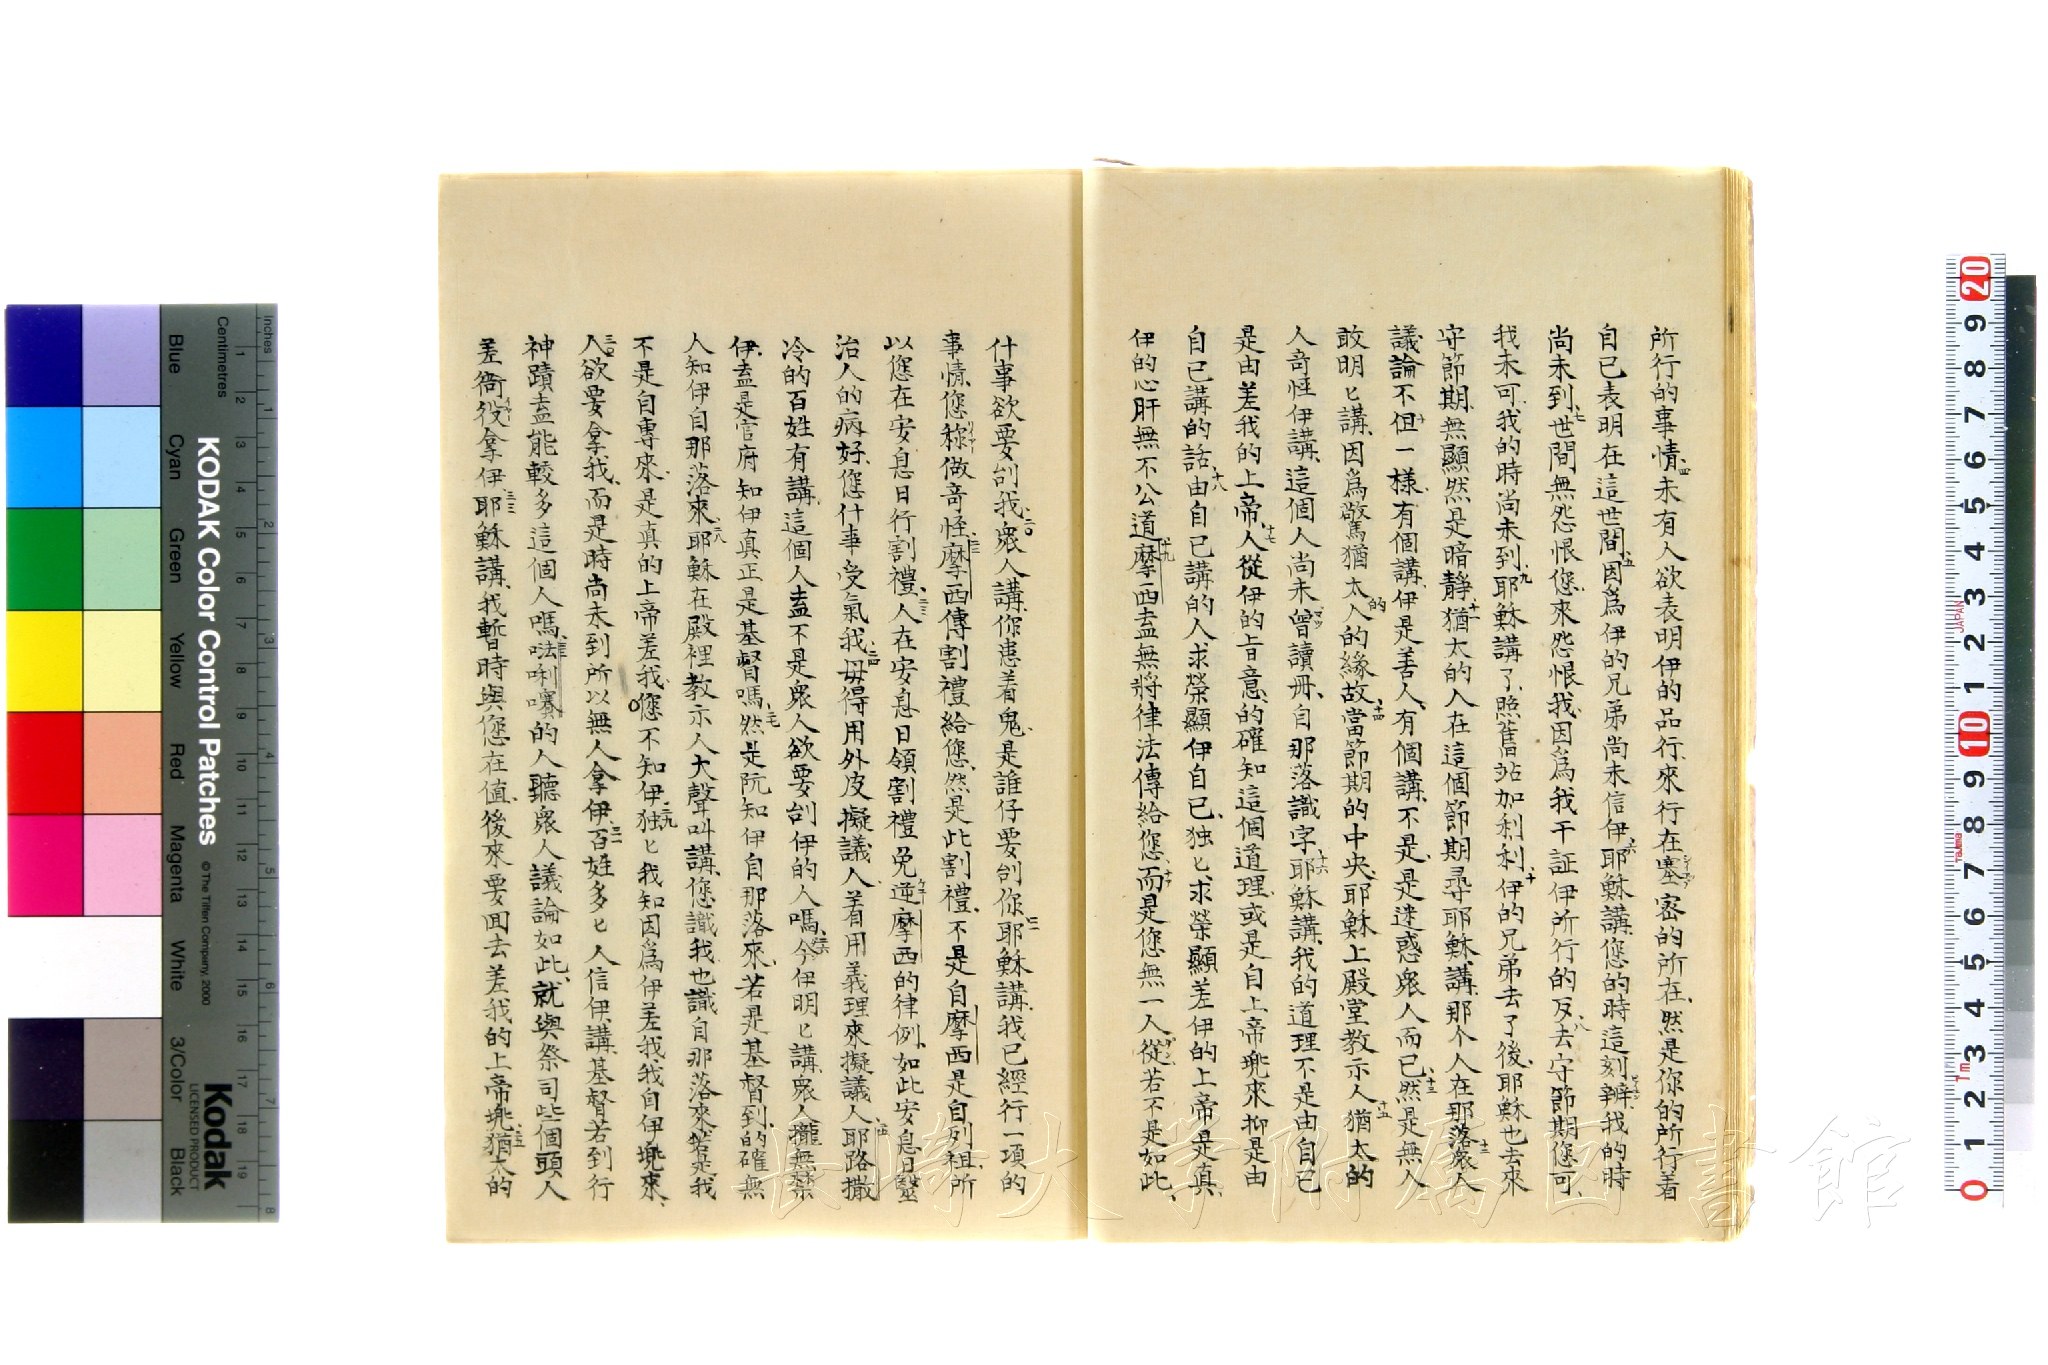 所行的事情四未有人欲表明伊的品行來行在塞密的所在然是你的所行着
自己表明在這世間五因爲伊的兄弟尚未信伊六耶穌講您的時這刻辦我的時
尚未到七世間無怨恨您來怨恨我因爲我干証伊所行的歹八去守節期您可
我未可我的時尚未到九耶穌講了照舊站加利利十伊的兄弟去了後耶穌也去來
守節期無顯然是暗靜十一猶太的人在這個節期尋耶穌講那个人在那落十二衆人
議論不但一樣有個講伊是善人有個講不是是迷惑衆人而已十三然是無人
敢明匕講因爲驚猶太人的緣故十四當節期的中央耶穌上殿堂教示人十五猶太的
人奇怪伊講這個人尚未曾讀冊自那落識字十六耶穌講我的道理不是由自己
是由差我的上帝十七人從伊的旨意的確知這個道理或是自上帝㧡來抑是由
自己講的話十八由自己講的人求榮顯伊自己独匕求榮顯差伊的上帝是真
伊的心肝無不公道十九摩西盍無將律法傳給您而是您無一人從若不是如此
什事欲要刣我二十衆人講你患着鬼是誰仔要刣你二一耶穌講我已經行一項的
事情您称做奇怪二二摩西傳割禮給您然是此割禮不是自摩西是自列祖所
以您在安息日行割禮二三人在安息日領割禮免逆摩西的律例如此安息日醫
治人的病好您什事受氣我二四毋得用外皮擬議人着用義理來擬議人二五耶路撒
冷的百姓有講這個人盍不是衆人欲要刣伊的人嗎二六今伊明匕講衆人攏無禁
伊盍是官府知伊真正是基督嗎二七然是阮知伊自那落來若是基督到的確無
人知伊自那落來二八耶穌在殿裡教示人大聲叫講您識我也識自那落來若是我
不是自專來是真的上帝差我您不知伊二九独匕我知因爲伊差我我自伊㧡來
三十人欲要拿我而是時尚未到所以無人拿伊三一百姓多匕人信伊講基督若到行
神蹟盍能較多這個人嗎三二㕸唎嘪的人聽衆人議論如此就與祭司些個頭人
差衙役拿伊三三耶穌講我暫時與您在值後來要囬去差我的上帝㧡三五猶太的
KODAK Color Control Patches
Kodak
LICENSED PRODUCT
© The Tiffen Company, 2000
Centimetres
Inches
Blue
Cyan
Green
Yellow
Red
Magenta
White
3/Color
Black
長崎大学附属図書館